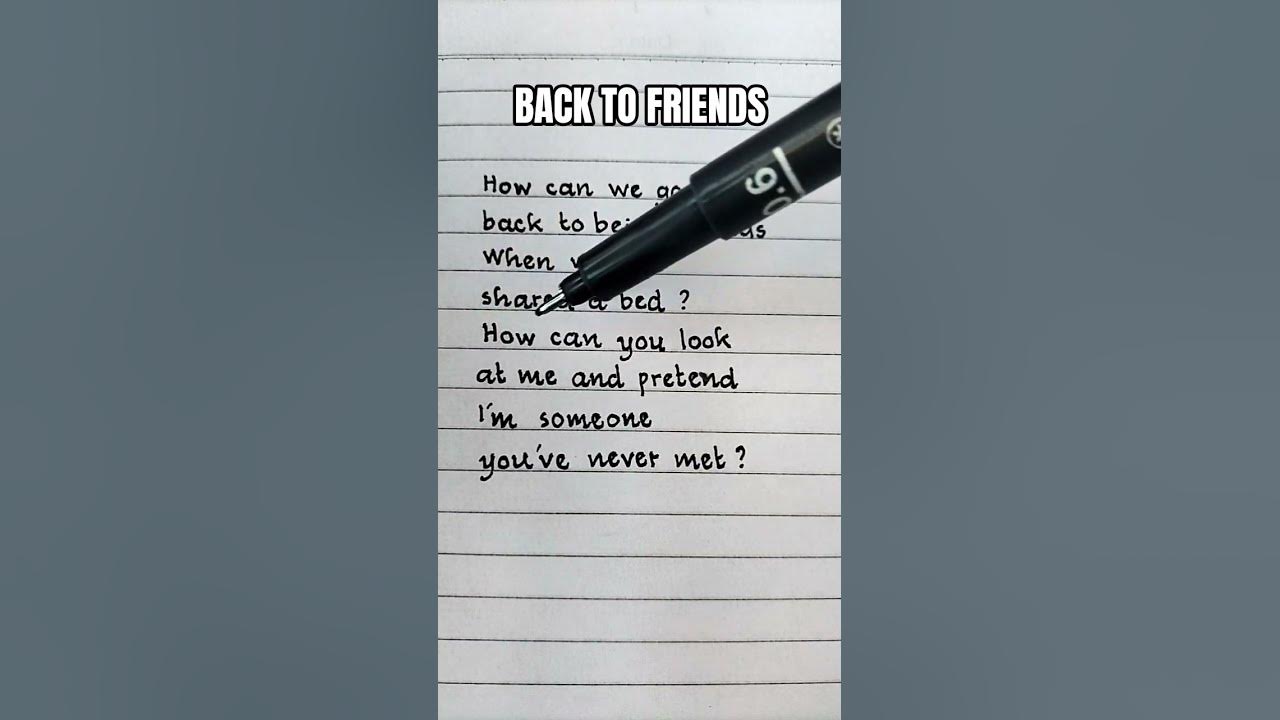 BACK TO FRIENDS
How can we go
back to
When
shared a bed ?
How can you look
at me and pretend
I'm someone
you've never met ?
0.6